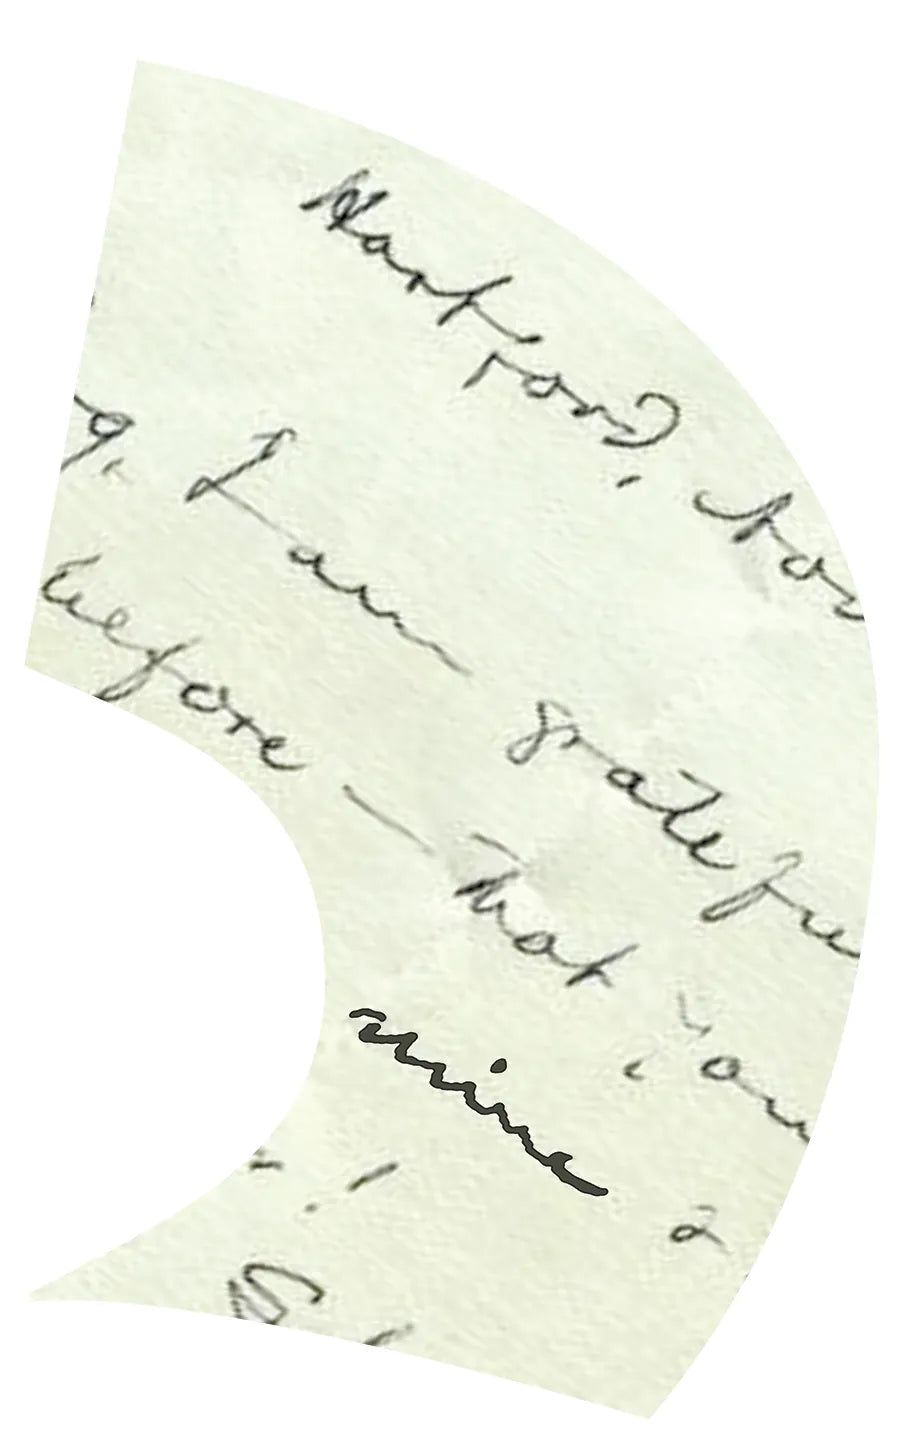 Hartford,
I am grateful
before — that you
mine a
!